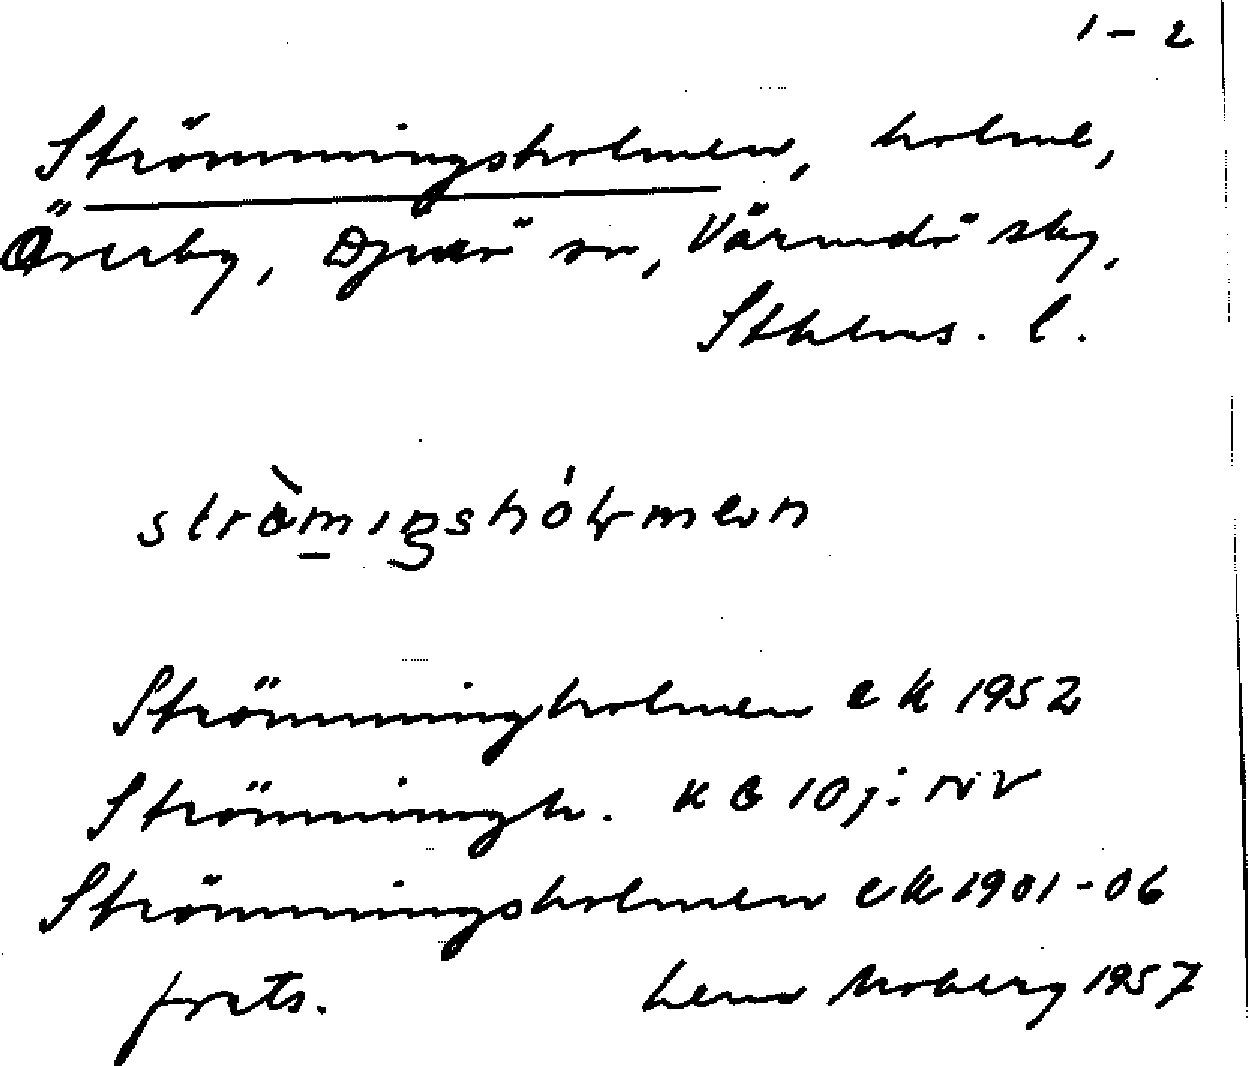 1-2
Strömmingsholmen, holme,
Överby, Djurö sn, Värmdö sky,
Sthlms. l.
strö̀mıgshólmen
Strömmingholmen ek 1952
Strömmingh. KB 10 j: NV
Strömmingsholmen ek 1901-06
forts. Lena Moberg 1957